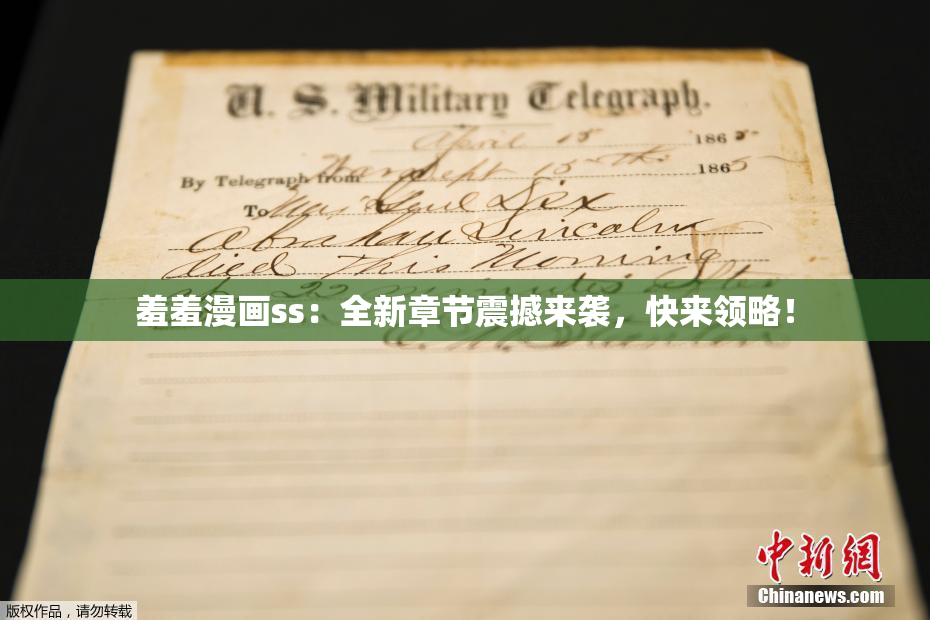 U. S. Military Telegraph.
April 15 1865
By Telegraph from War Dept 15th 1865
To Maj Genl Dix
Abraham Lincoln
died This Morning
at 22 minutes after
羞羞漫画ss：全新章节震撼来袭，快来领略！
E. M. Stanton
中新網
Chinanews.com
版权作品，请勿转载